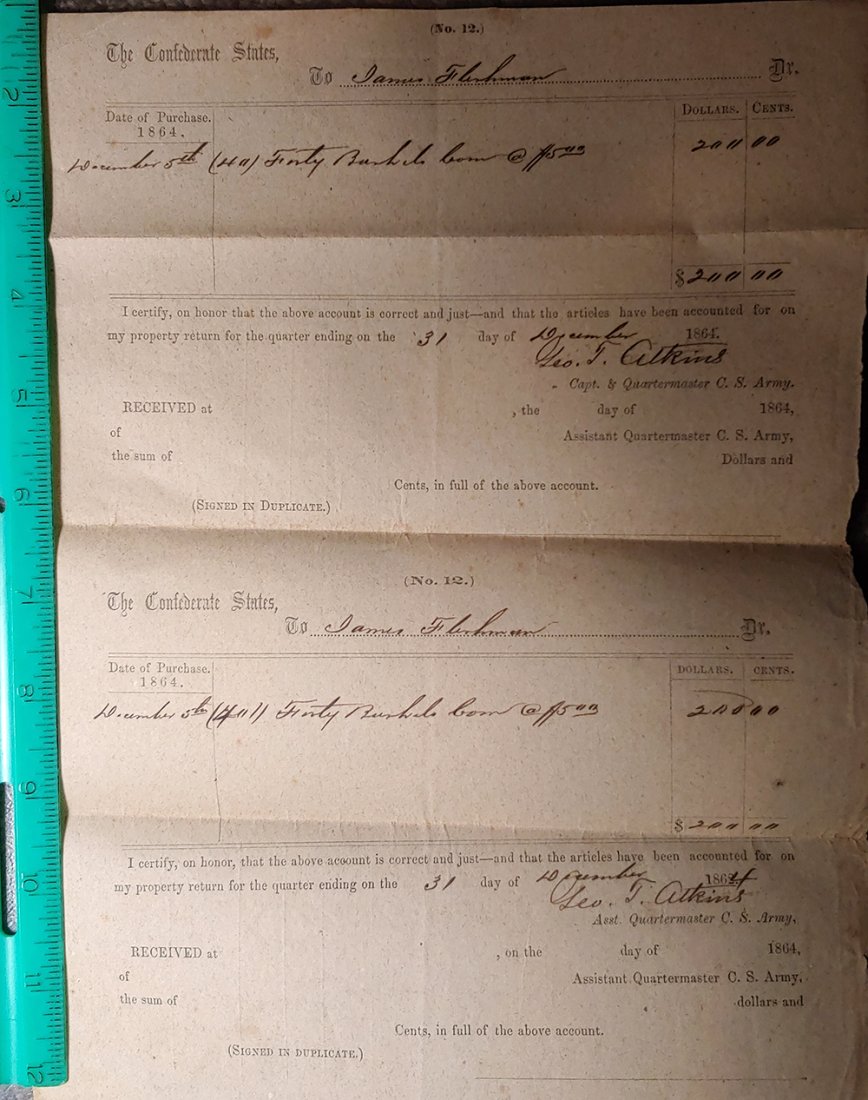 (No. 12.)
The Confederate States,
To James Fleshman Dr.
Date of Purchase. 1864. DOLLARS. CENTS.
December 5th (40) Forty Bushels Corn @ $5.00 200 00
$ 200 00
I certify, on honor that the above account is correct and just—and that the articles have been accounted for on
my property return for the quarter ending on the 31 day of December 1864.
Geo. T. Atkins
Capt. & Quartermaster C. S. Army.
RECEIVED at , the day of 1864,
of Assistant Quartermaster C. S. Army,
the sum of Dollars and
Cents, in full of the above account.
(SIGNED IN DUPLICATE.)
(No. 12.)
The Confederate States,
To James Fleshman Dr.
Date of Purchase. 1864. DOLLARS. CENTS.
December 5th (40) Forty Bushels Corn @ $5.00 200 00
$ 200 00
I certify, on honor, that the above account is correct and just—and that the articles have been accounted for on
my property return for the quarter ending on the 31 day of December 1864
Geo. T. Atkins
Asst. Quartermaster C. S. Army,
RECEIVED at , on the day of 1864,
of Assistant Quartermaster C. S. Army,
the sum of dollars and
Cents, in full of the above account.
(SIGNED IN DUPLICATE.)
2
3
4
5
6
7
8
9
10
11
12